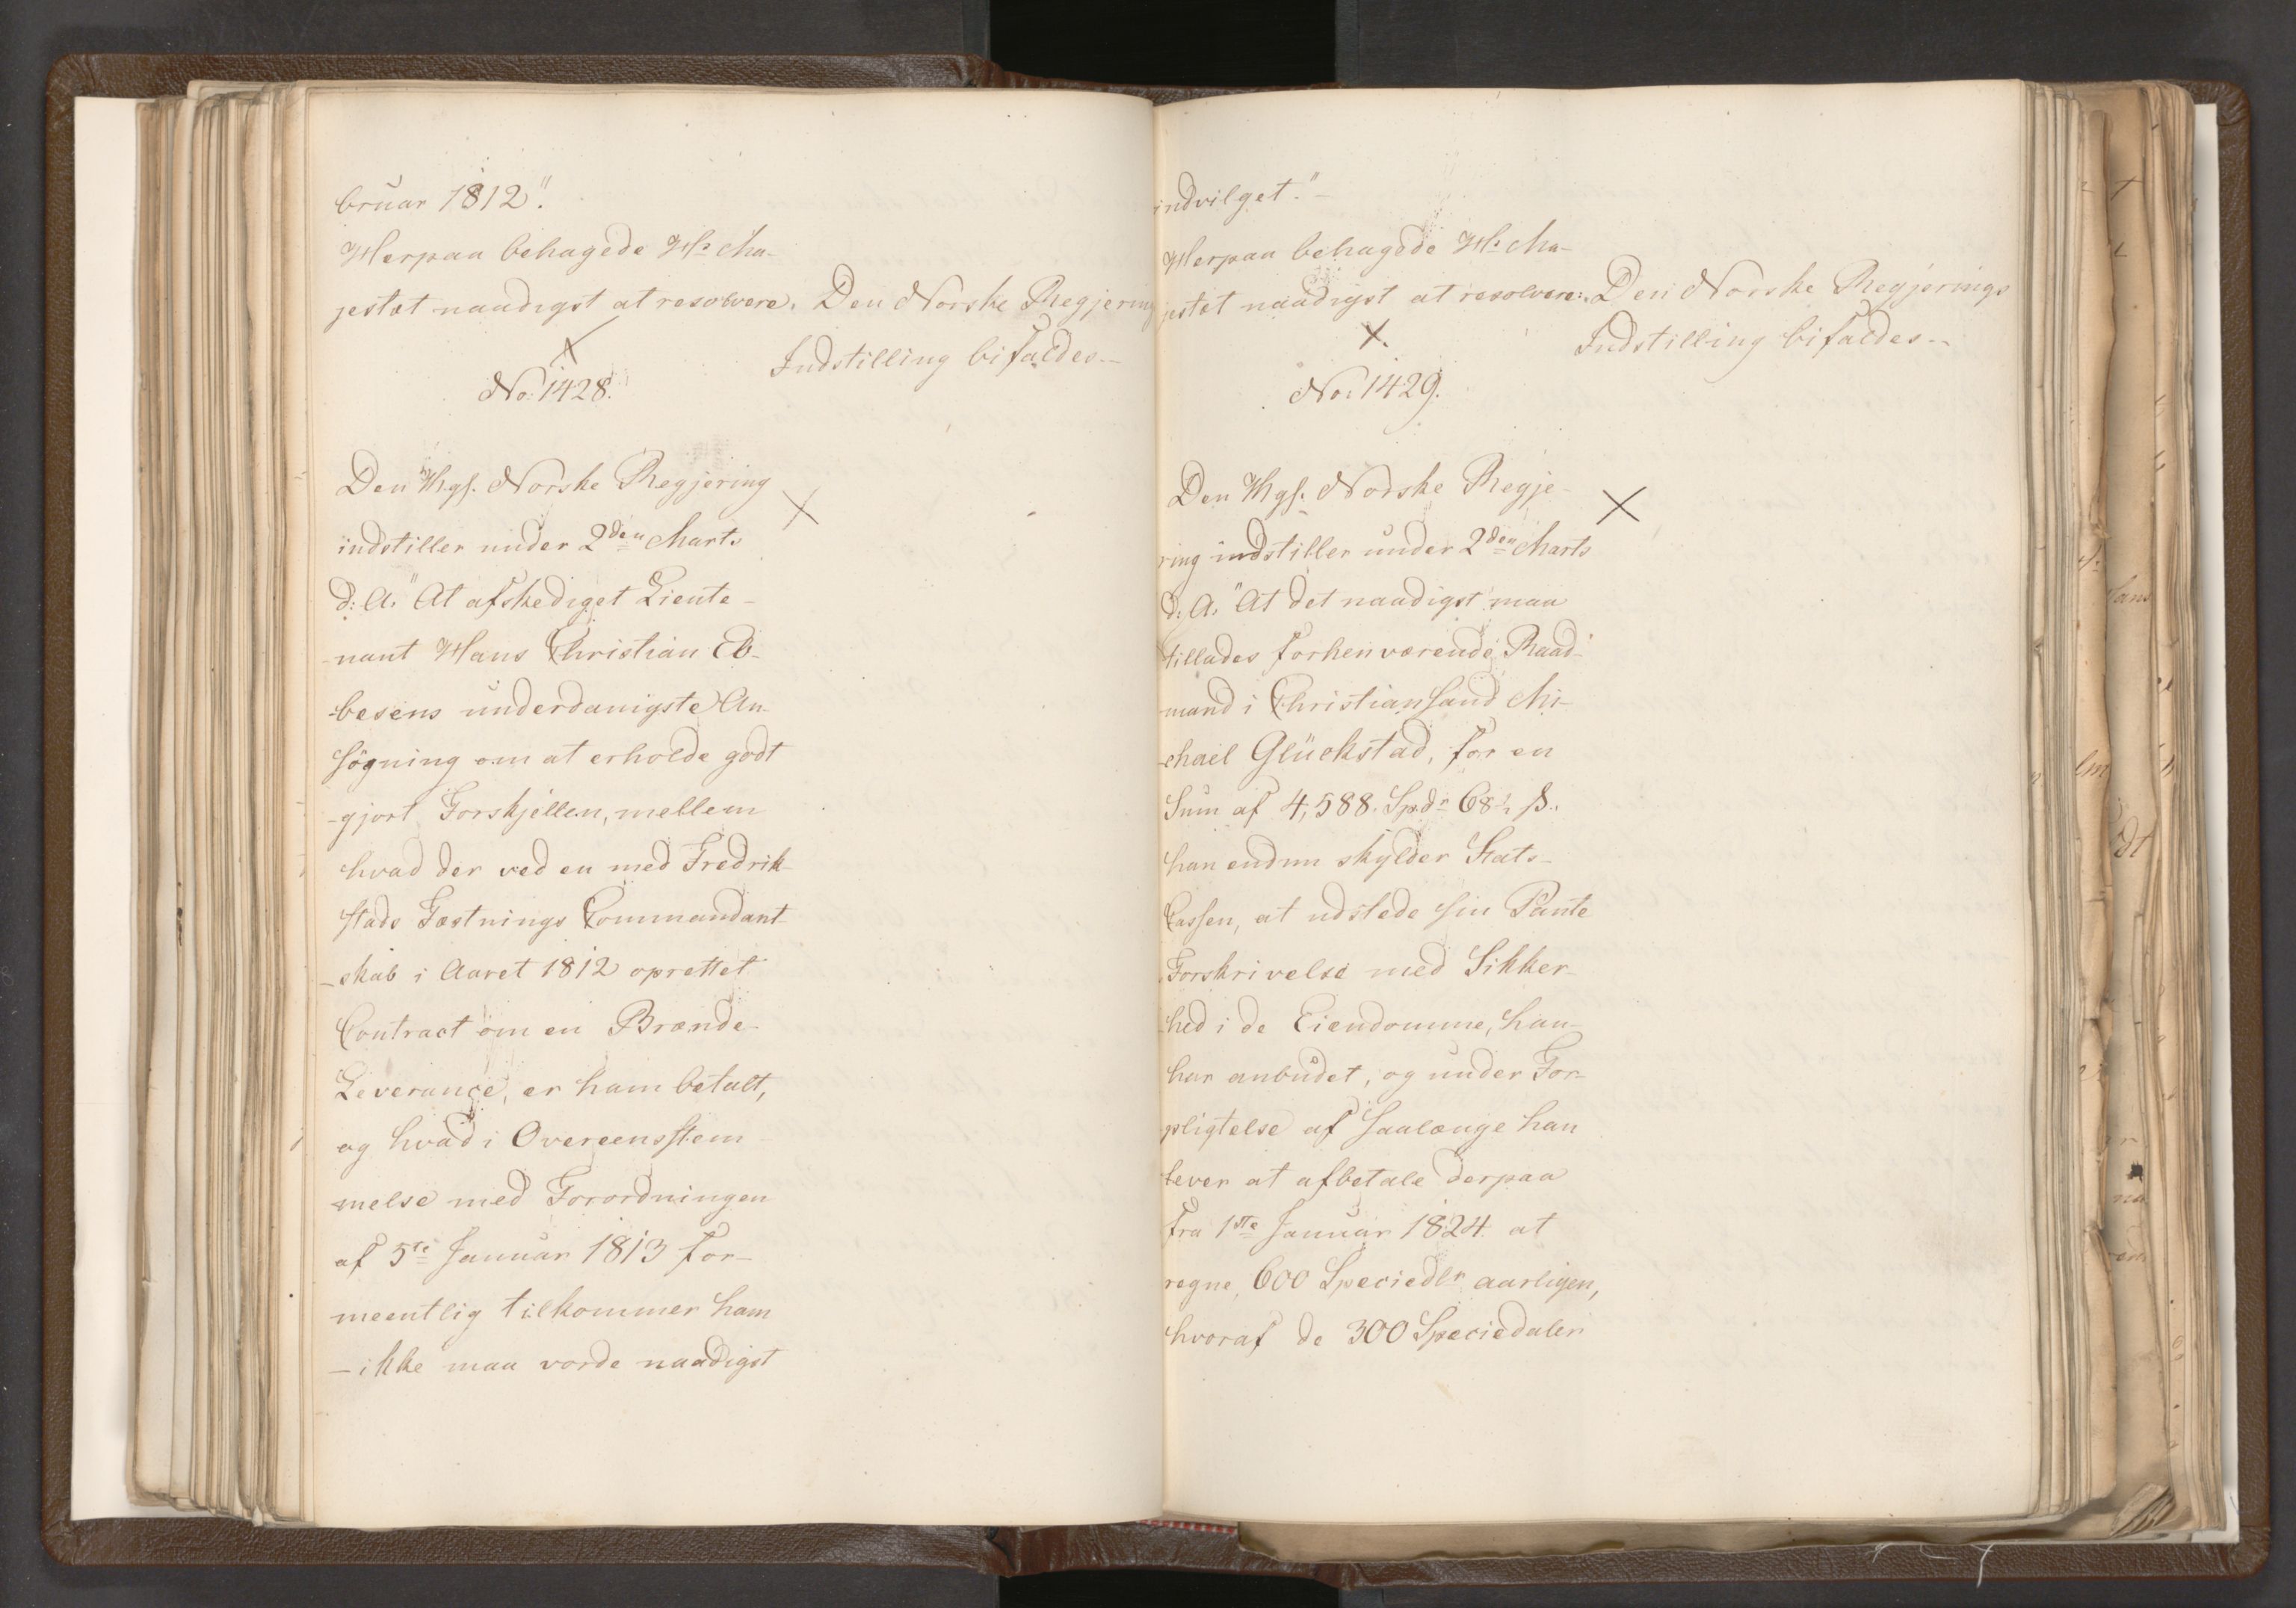 bruar 1812".
Herpaa behagede Hs Ma-
jestæt naadigst at resolvere. Den Norske Regjering
Indstilling bifaldes.-
No. 1428.
Den Kgs. Norske Regjering
indstiller under 2den Marts
d: A. "At afskediget Lieute-
-nant Hans Christian Eb-
-besens underdanigste An-
søgning om at erholde godt
-gjort Forskjellen, mellem
hvad der ved en med Fredrik-
stads Fæstnings Commandant-
-skab i Aaret 1812 oprettet
Contract om en Brænde-
Leverance, er ham betalt,
og hvad i Overeensstem-
melse med Forordningen
af 5te Januar 1813 for-
meentlig tilkommer ham
- ikke maa vorde naadigst
indvilget."-
Herpaa behagede Hs Ma-
jestæt naadigst at resolvere: Den Norske Regjerings
Indstilling bifaldes.-
No. 1429.
Den Kgs. Nodske Regje-
ring indstiller under 2den Marts
d: A. "At det naadigst maa
tillades forhenværende Raad-
mand i Christiansand Mi-
-chael Glückstad, for en
Sum af 4,588. Spdr 68½ s.
han endnu skylder Stats-
Cassen, at udstede sin Pante
Forskrivelse med Sikker-
hed i de Eiendomme, han
har anbudet, og under For-
pligtelse af saalænge han
lever at afbetale derpaa
fra 1ste Januar 1824 at
regne, 600 Speciedlr aarligen,
hvoraf de 300 Speciedaler